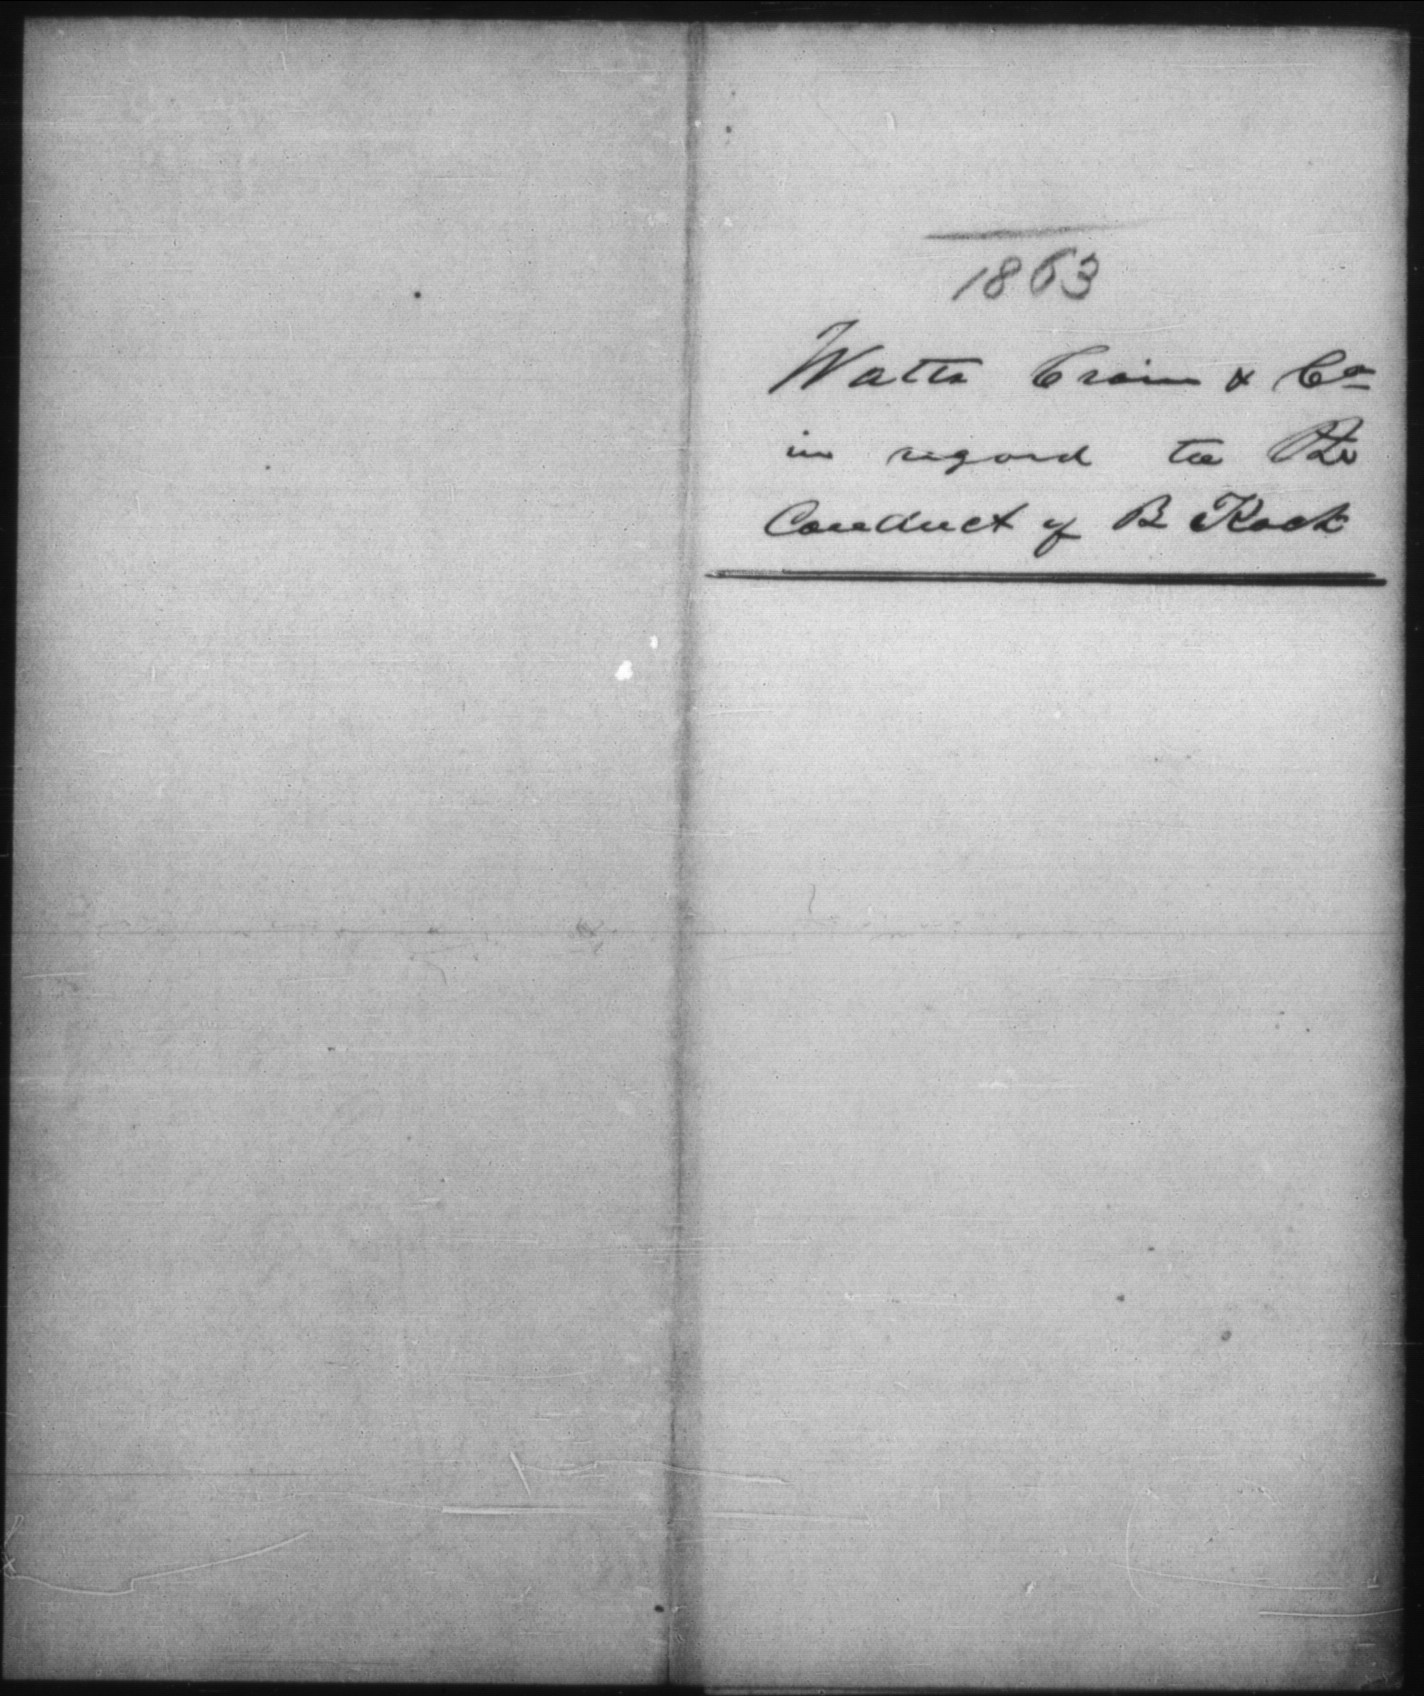 1863
Watts Crain & Co
in regard to the
Conduct of B Kock